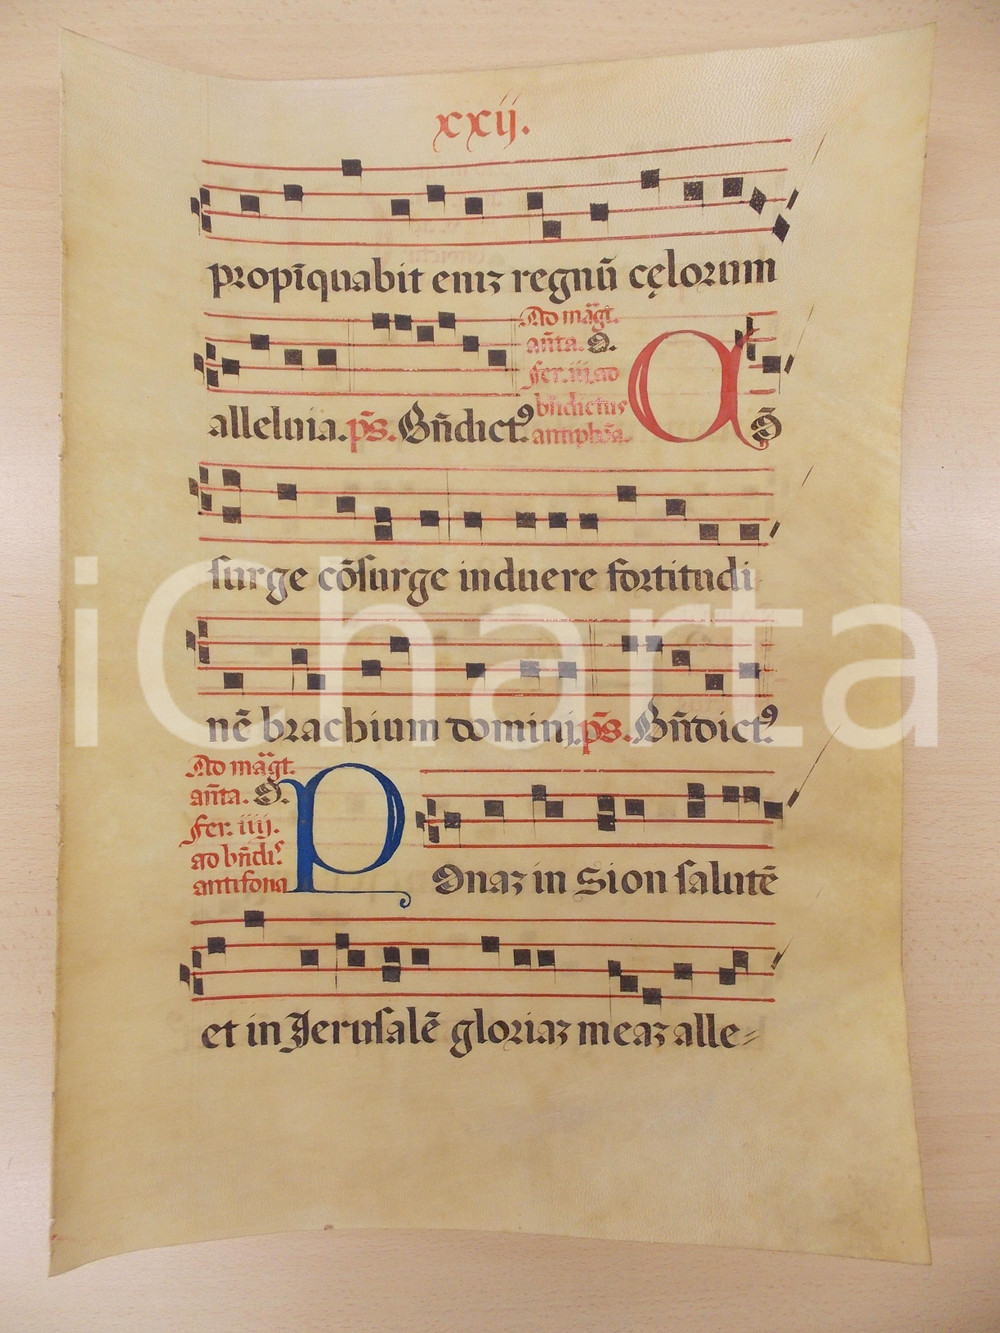 xxij.
propīquabit enīȝ regnū cęlorum
Ad māgt.
añta. D.
fer. iij. ad
bñdictus
antiphõa.
alleluia. p̄s. Bñdictꝰ A D
surge cōsurge induere fortitudi
nē brachium domini. p̄s. Bñdictꝰ
Ad māgt.
añta. D.
fer. iiij.
ad bñdis
antifona
P Onaȝ in Sion salutē
et in Jerusalē gloriaȝ meaȝ alle=
iCharta